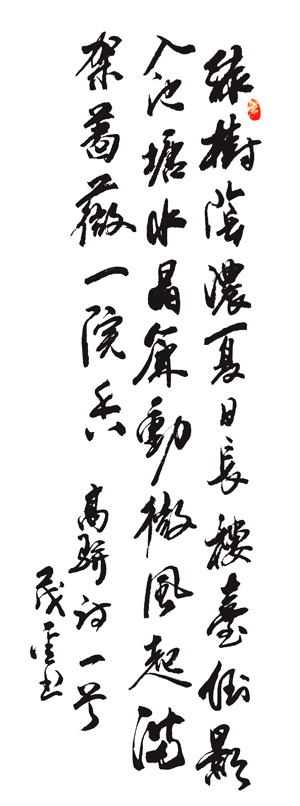 綠樹陰濃夏日長樓臺倒影
入池塘水晶簾動微風起滿
架薔薇一院香 高駢詩一首
茂雲書